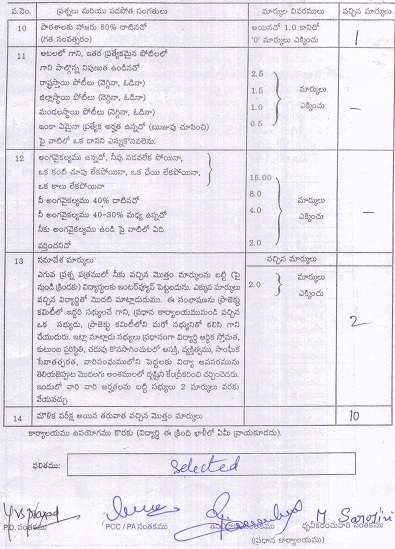 వ.నెం. ప్రశ్నలు మరియు పడపోత సంగతులు మార్కుల వివరములు వచ్చిన మార్కులు
10 పాఠశాలకు హాజరు 80% దాటినదో అయినదో 1.0 కానిదో 1
(గత సంవత్సరం) '0' మార్కులు ఎక్కించు
11 ఆటలలో గాని, ఇతర ప్రత్యేకమైన పోటీలలో
గాని పాల్గొన్న నిపుణత ఉండినదో
రాష్ట్రస్థాయి పోటీలు (నెగ్గినా, ఓడినా) 2.5
జిల్లాస్థాయి పోటీలు (నెగ్గినా, ఓడినా) 1.5 మార్కులు
మండలస్థాయి పోటీలు (నెగ్గినా, ఓడినా) 1.0 ఎక్కించు –
ఇంకా ఏమైనా ప్రత్యేక అర్హత ఉన్నదో (ఋజువు చూపించి) 0.5
పై వాటిలో ఒక దానిని ఎన్నుకొనవలెను.
12 అంగవైకల్యము ఉన్నదో, నీవు నడవలేక పోయినా,
ఒక కంటి చూపు లేకపోయినా, ఒక చేయి లేకపోయినా, 15.00
ఒక కాలు లేకపోయినా 8.0
నీ అంగవైకల్యము 40% దాటినదో 4.0 మార్కులు
నీ అంగవైకల్యము 40-30% మధ్య ఉన్నదో ఎక్కించు –
నీకు అంగవైకల్యము ఉండి పై వాటిలో ఏది
వర్తించనిదో 2.0
13 సమావేశ మార్కులు వచ్చిన మార్కులు
ఎగువ ప్రశ్న పత్రములో నీకు వచ్చిన మొత్తం మార్కులను బట్టి (పై
నుండి క్రిందకు) విద్యార్థులకు ఇంటర్వ్యూవ్ పెట్టబడును. ఎక్కువ మార్కులు 2.0 మార్కులు
వచ్చిన విద్యార్థితో మొదలి మాట్లాడుదుము. ఈ సంభాషణను ప్రాజెక్టు ఎక్కించు
కమిటీలో ఇద్దరి సభ్యులచే గాని, ప్రధాన కార్యాలయమునుండి వచ్చిన 2
ఒక సభ్యుడు, ప్రాజెక్టు కమిటీలోని మరో సభ్యునితో కలిసి గాని
చేయుదురు. ఇట్లా మాట్లాడు సభ్యులు ప్రధానంగా విద్యార్థి ఆర్థిక స్తోమత,
కుటుంబ పరిస్థితి, చదువు కొనసాగించుటలో ఆసక్తి, వ్యక్తిత్వము, సాంఘిక
సేవాతత్పరత, వారిసంఘములోని పెద్దలకు విద్యా అవసరమును
తెలియజెప్పుట మొదలగు అంశములలో దృష్టిని కేంద్రీకరించి చర్చించెదరు.
ఇందులో వారి వారి అర్హతలను బట్టి సభ్యులు 2 మార్కులు వరకు
వేయవచ్చు.
14 మౌళిక పరీక్ష అయిన తరువాత వచ్చిన మొత్తం మార్కులు 10
కార్యాలయము ఉపయోగము కొరకు (విద్యార్థి ఈ క్రింది ఖాళీలో ఏమీ వ్రాయకూడదు).
ఫలితము: Selected
M. Sarojini
P.D. సంతకము PCC / PA సంతకము ధృవీకరించువారి సంతకము
(ప్రధాన కార్యాలయము)